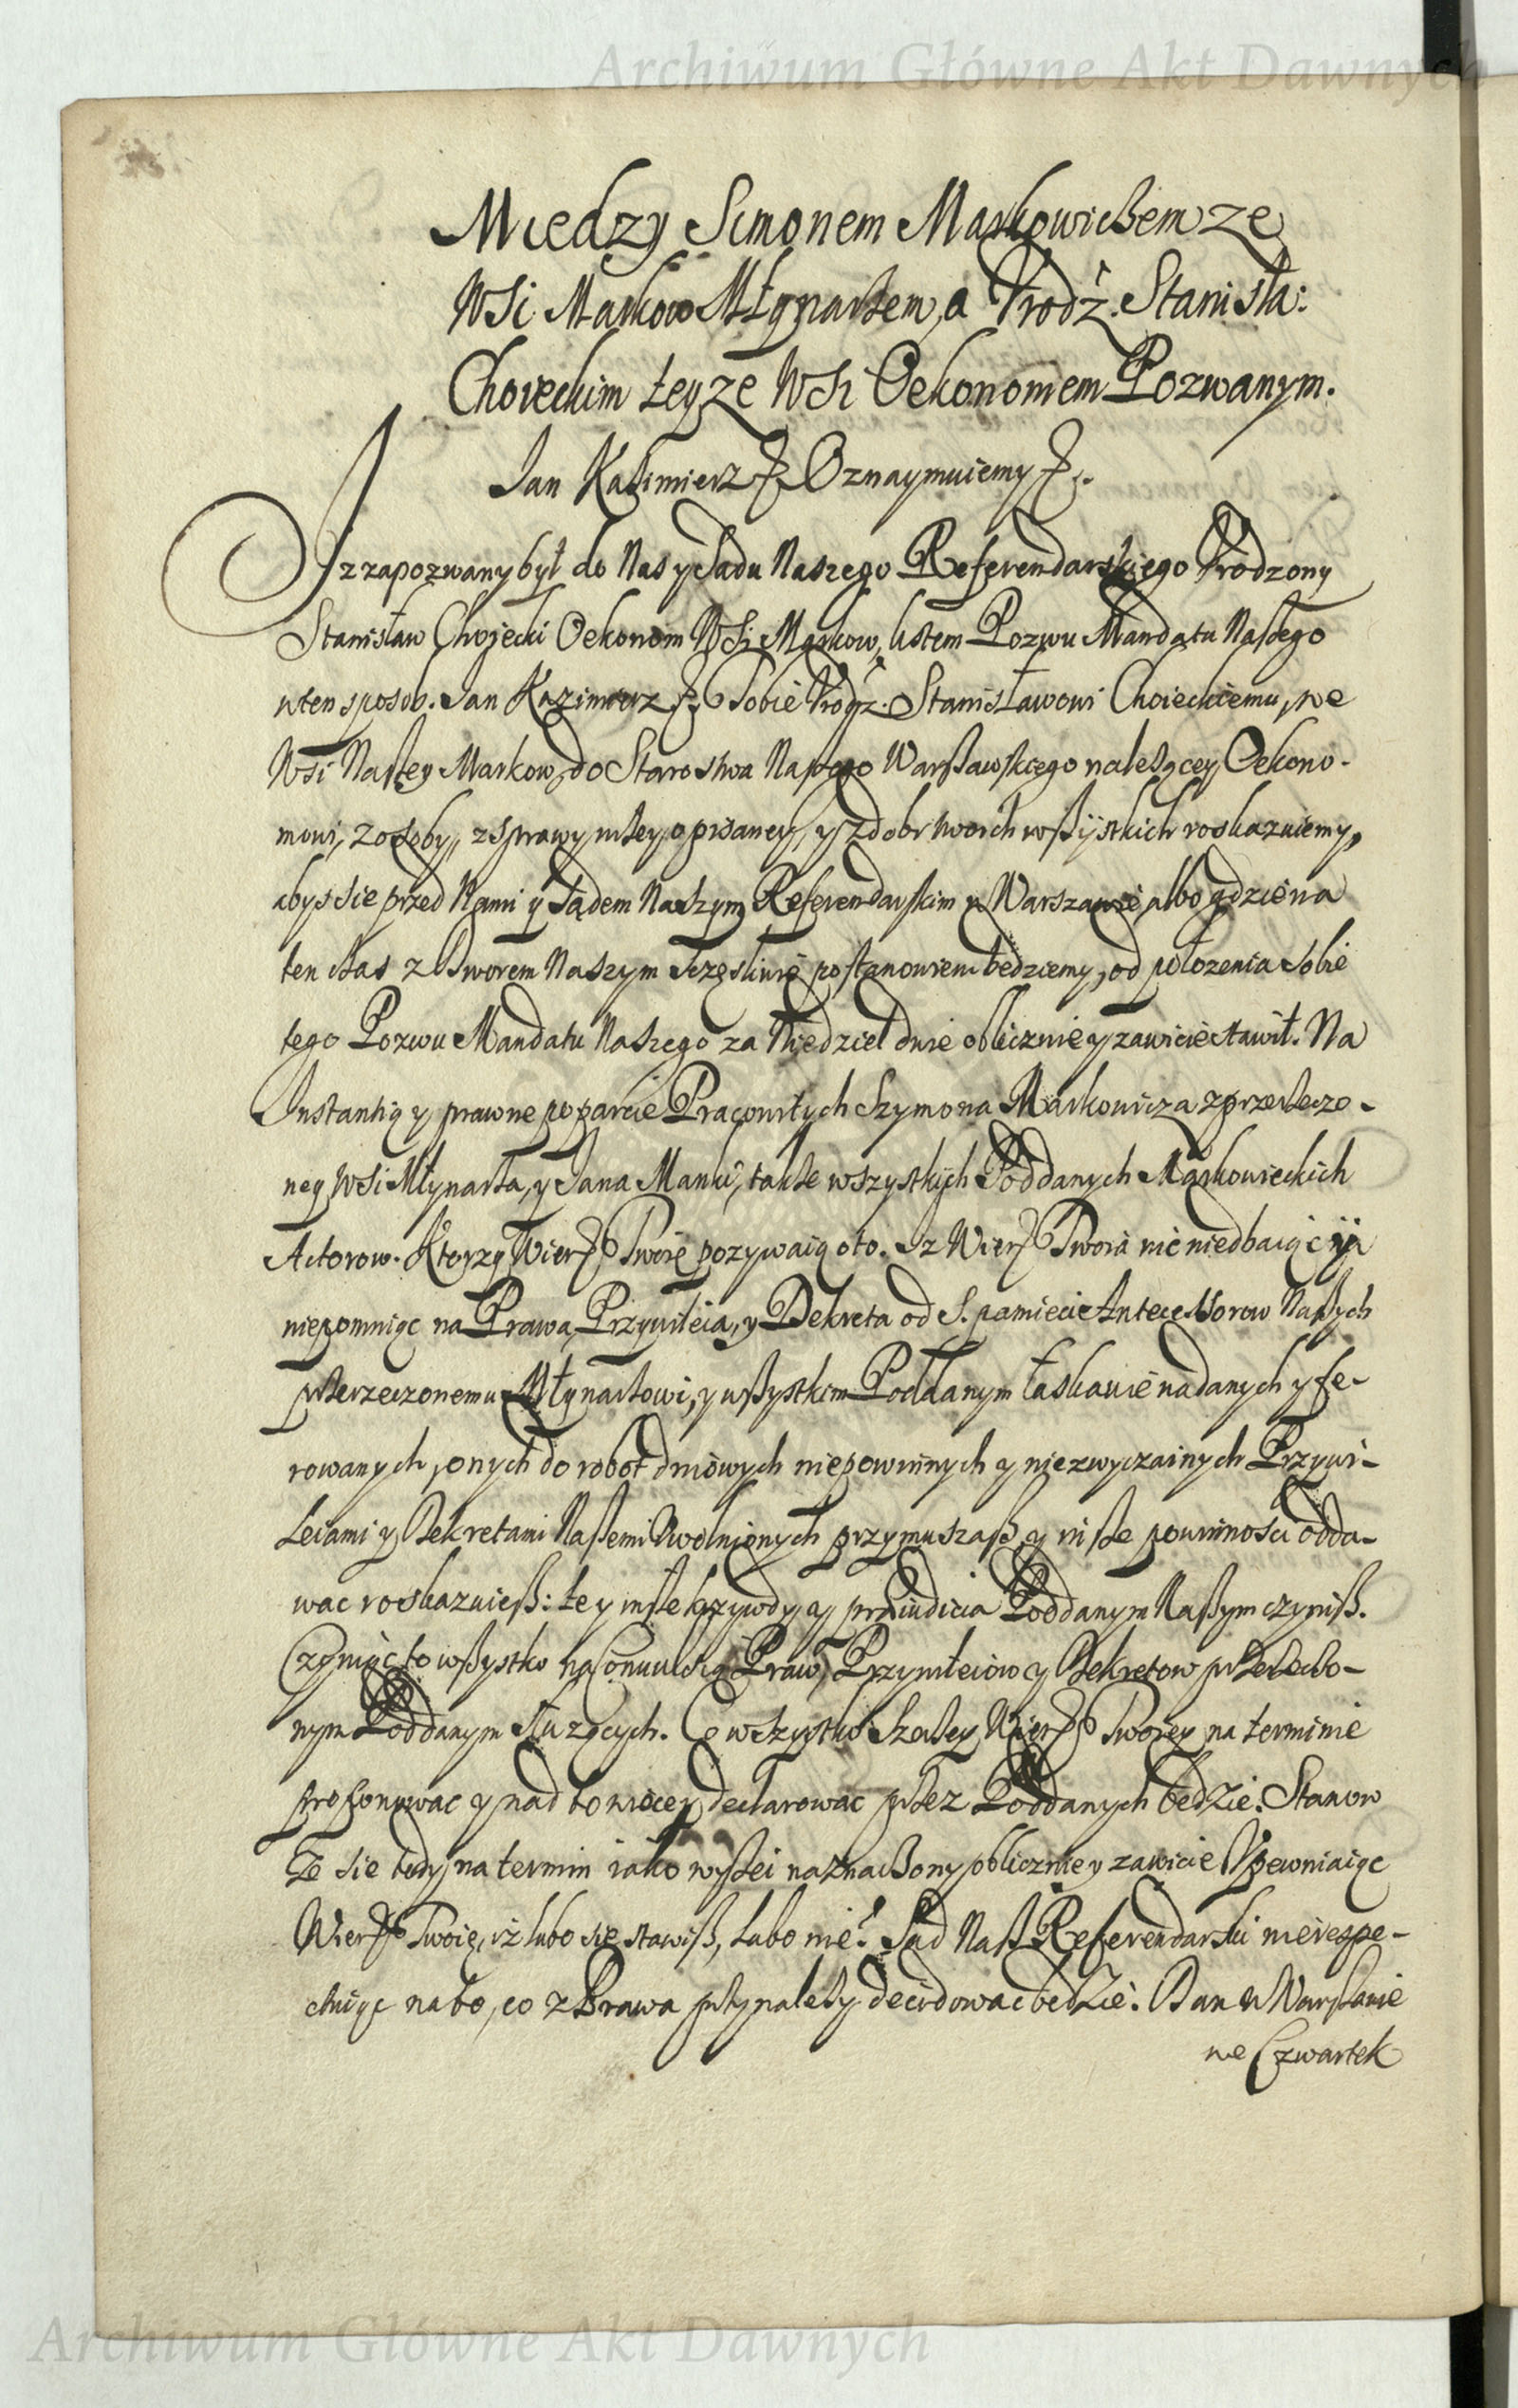 Archiwum Główne Akt Dawnych
Miedzy Simonem Markowiczem ze
Wsi Markow Młynarzem, a Vrodz. Stanisła:
Choieckim teyze Wsi Oekonomem Pozwanym.
Jan Kazimierz Oznaymuiemy
Iz zapozwany był do Nas y Sądu Naszego Referendarskiego Vrodzony
Stanisław Chojecki Oekonom Wsi Markow, listem Pozwu Mandatu Naszego
w ten sposob. Jan Kazimierz Tobie Vrodz. Stanisławowi Choieckiemu, we
Wsi Naszey Markow, do Starostwa Naszego Warszawskiego nalezącey Oekono-
mowi, z osoby, z sprawy nizey opisaney, y z dobr twoich wszystkich roskazuiemy,
abys sie przed Nami y Sądem Naszym Referendarskim w Warszawie albo gdzie na
ten czas z Dworem Naszym Szczęsliwie postanowieni bedziemy, od połozenia sobie
tego Pozwu Mandatu Naszego za Niedziel dwie oblicznie y zawicie stawił. Na
Instantią y prawne poparcie Pracowitych Szymona Markowicza z przerzeczo-
ney Wsi Młynarza, y Jana Manki, takze wszystkich Poddanych Markowieckich
Actorow. Ktorzy Wier. Twoię pozywaią oto. Iz Wier. Twoia nic niedbaiąc y
niepomniąc na Prawa, Przywileia, y Dekreta od S. pamiecie Antecessorow Naszych
przerzeczonemu Młynarzowi, y wszystkim Poddanym łaskawie nadanych y fe-
rowanych, onych do robot dniowych niepowinnych y niezwyczainych Przywi-
leiami y Dekretami Naszemi Uwolnionych przymuszasz, y insze powinnosci odda-
wac roskazuiesz: te y insze krzywdy y praeiudicia Poddanym Naszym czynisz.
Czyniąc to wszystko na Conuulsią Praw, Przywileiow y Dekretow przerzeczo-
nym Poddanym słuzących. Co wszystko szerzey Wier. Twoiey na terminie
proponowac y nad to więcey declarowac przez Poddanych bedzie. Stanow
ze sie tedy na termin iako wyszei naznaczony oblicznie y zawicie Vpewniaiąc
Wier. Twoię, iz lubo sie stawisz, lubo nie: Sąd Nasz Referendarski nie respe-
ctuiąc na to, co z Prawa przynalezy decidowac bedzie. Dan w Warszawie
we Czwartek
Archiwum Główne Akt Dawnych